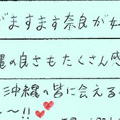 ますます奈良が好
縄の良さもたくさん感
沖縄の皆に会える
〜!!